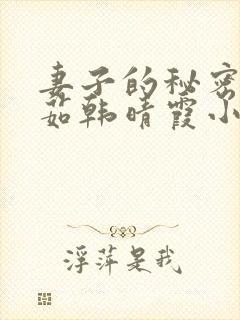 妻子的秘密
茹韩晴霞小
浮萍是我